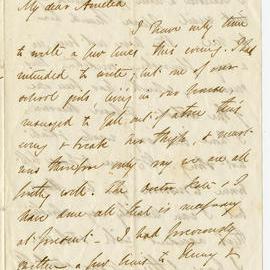 My dear Amelia
I have only time
to write a few lines this evening. I had
intended to write, but one of our
school girls, living in our house,
managed to fall out of a tree this
evening & break her thigh, &
and therefore only say we are all
pretty well. The doctor I
have done all that is necessary
at present – I had previously
written a few lines to Henry &